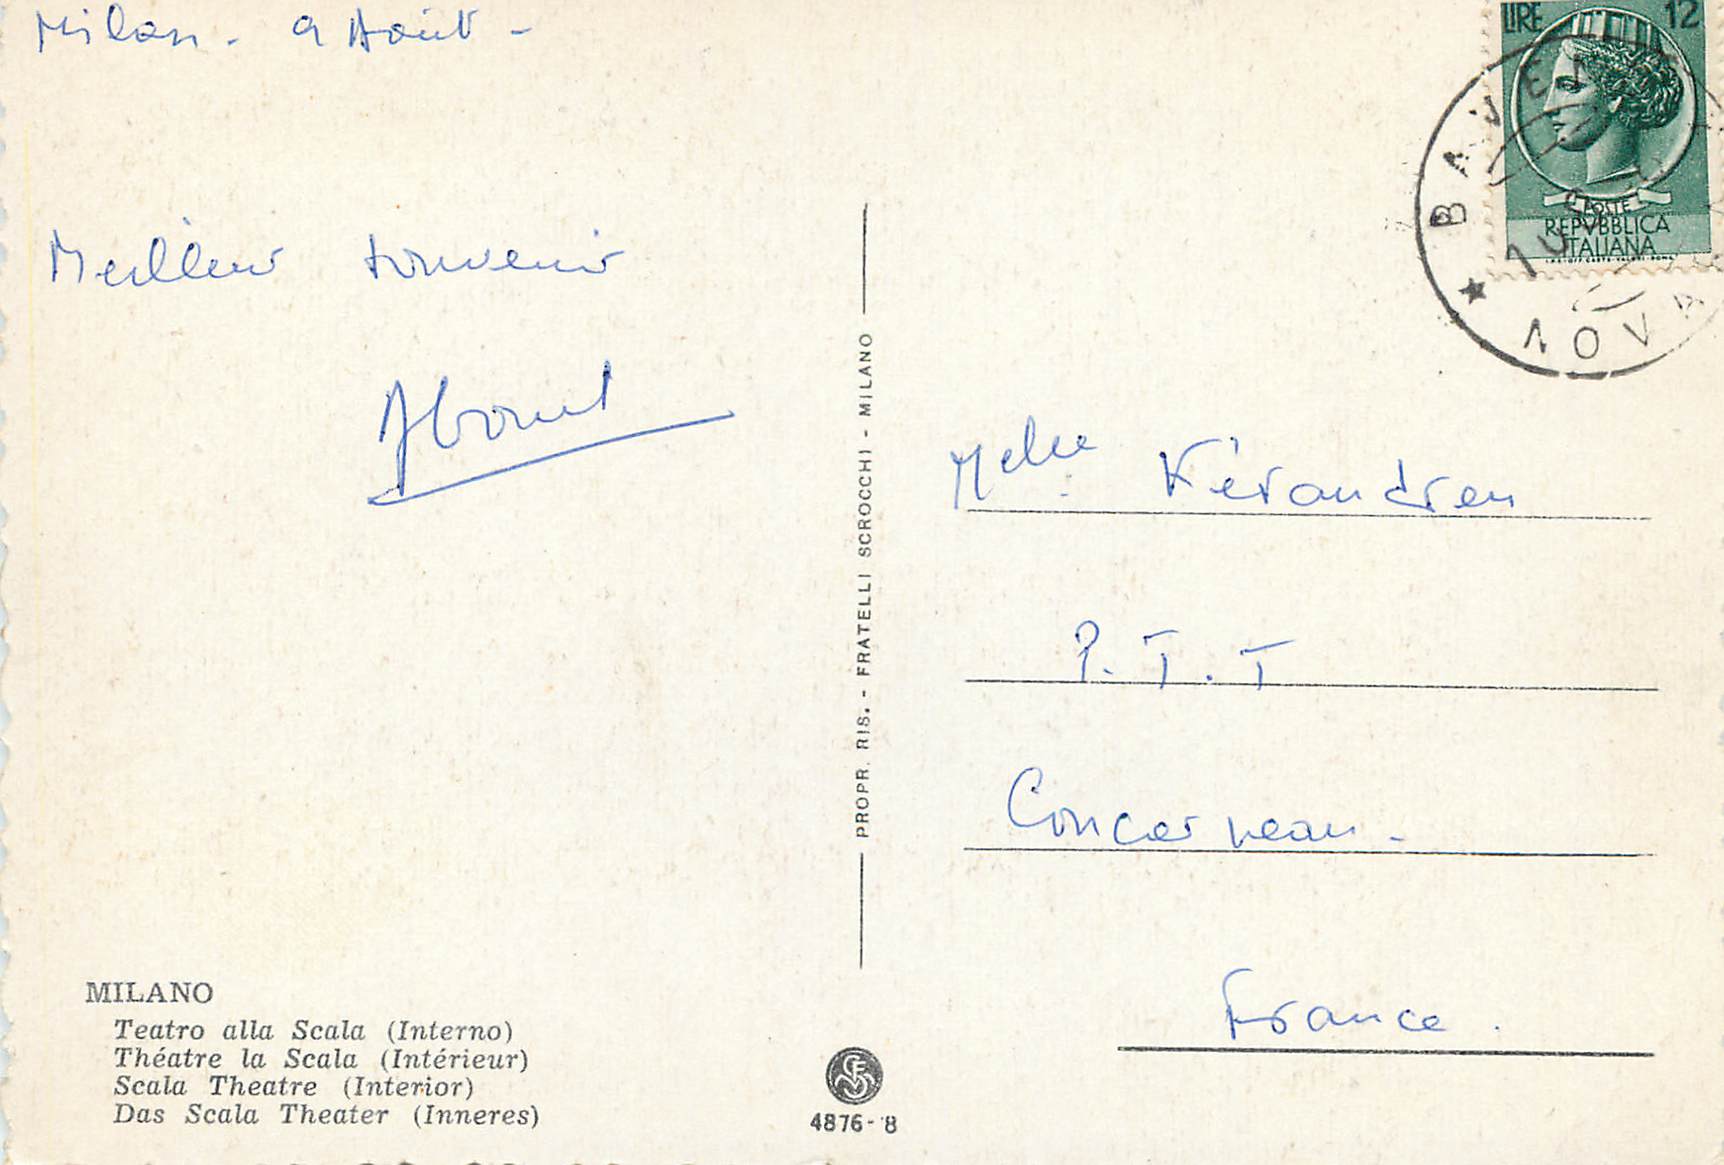 Milan - 9 Août -
Meilleur souvenir
LIRE 12
POSTE
REPVBBLICA
ITALIANA
BAVENO
NOVARA
10
Melle Kérandren
P.T.T
Concarneau -
France.
PROPR. RIS. - FRATELLI SCROCCHI - MILANO
MILANO
Teatro alla Scala (Interno)
Théatre la Scala (Intérieur)
Scala Theatre (Interior)
Das Scala Theater (Inneres)
4876-8